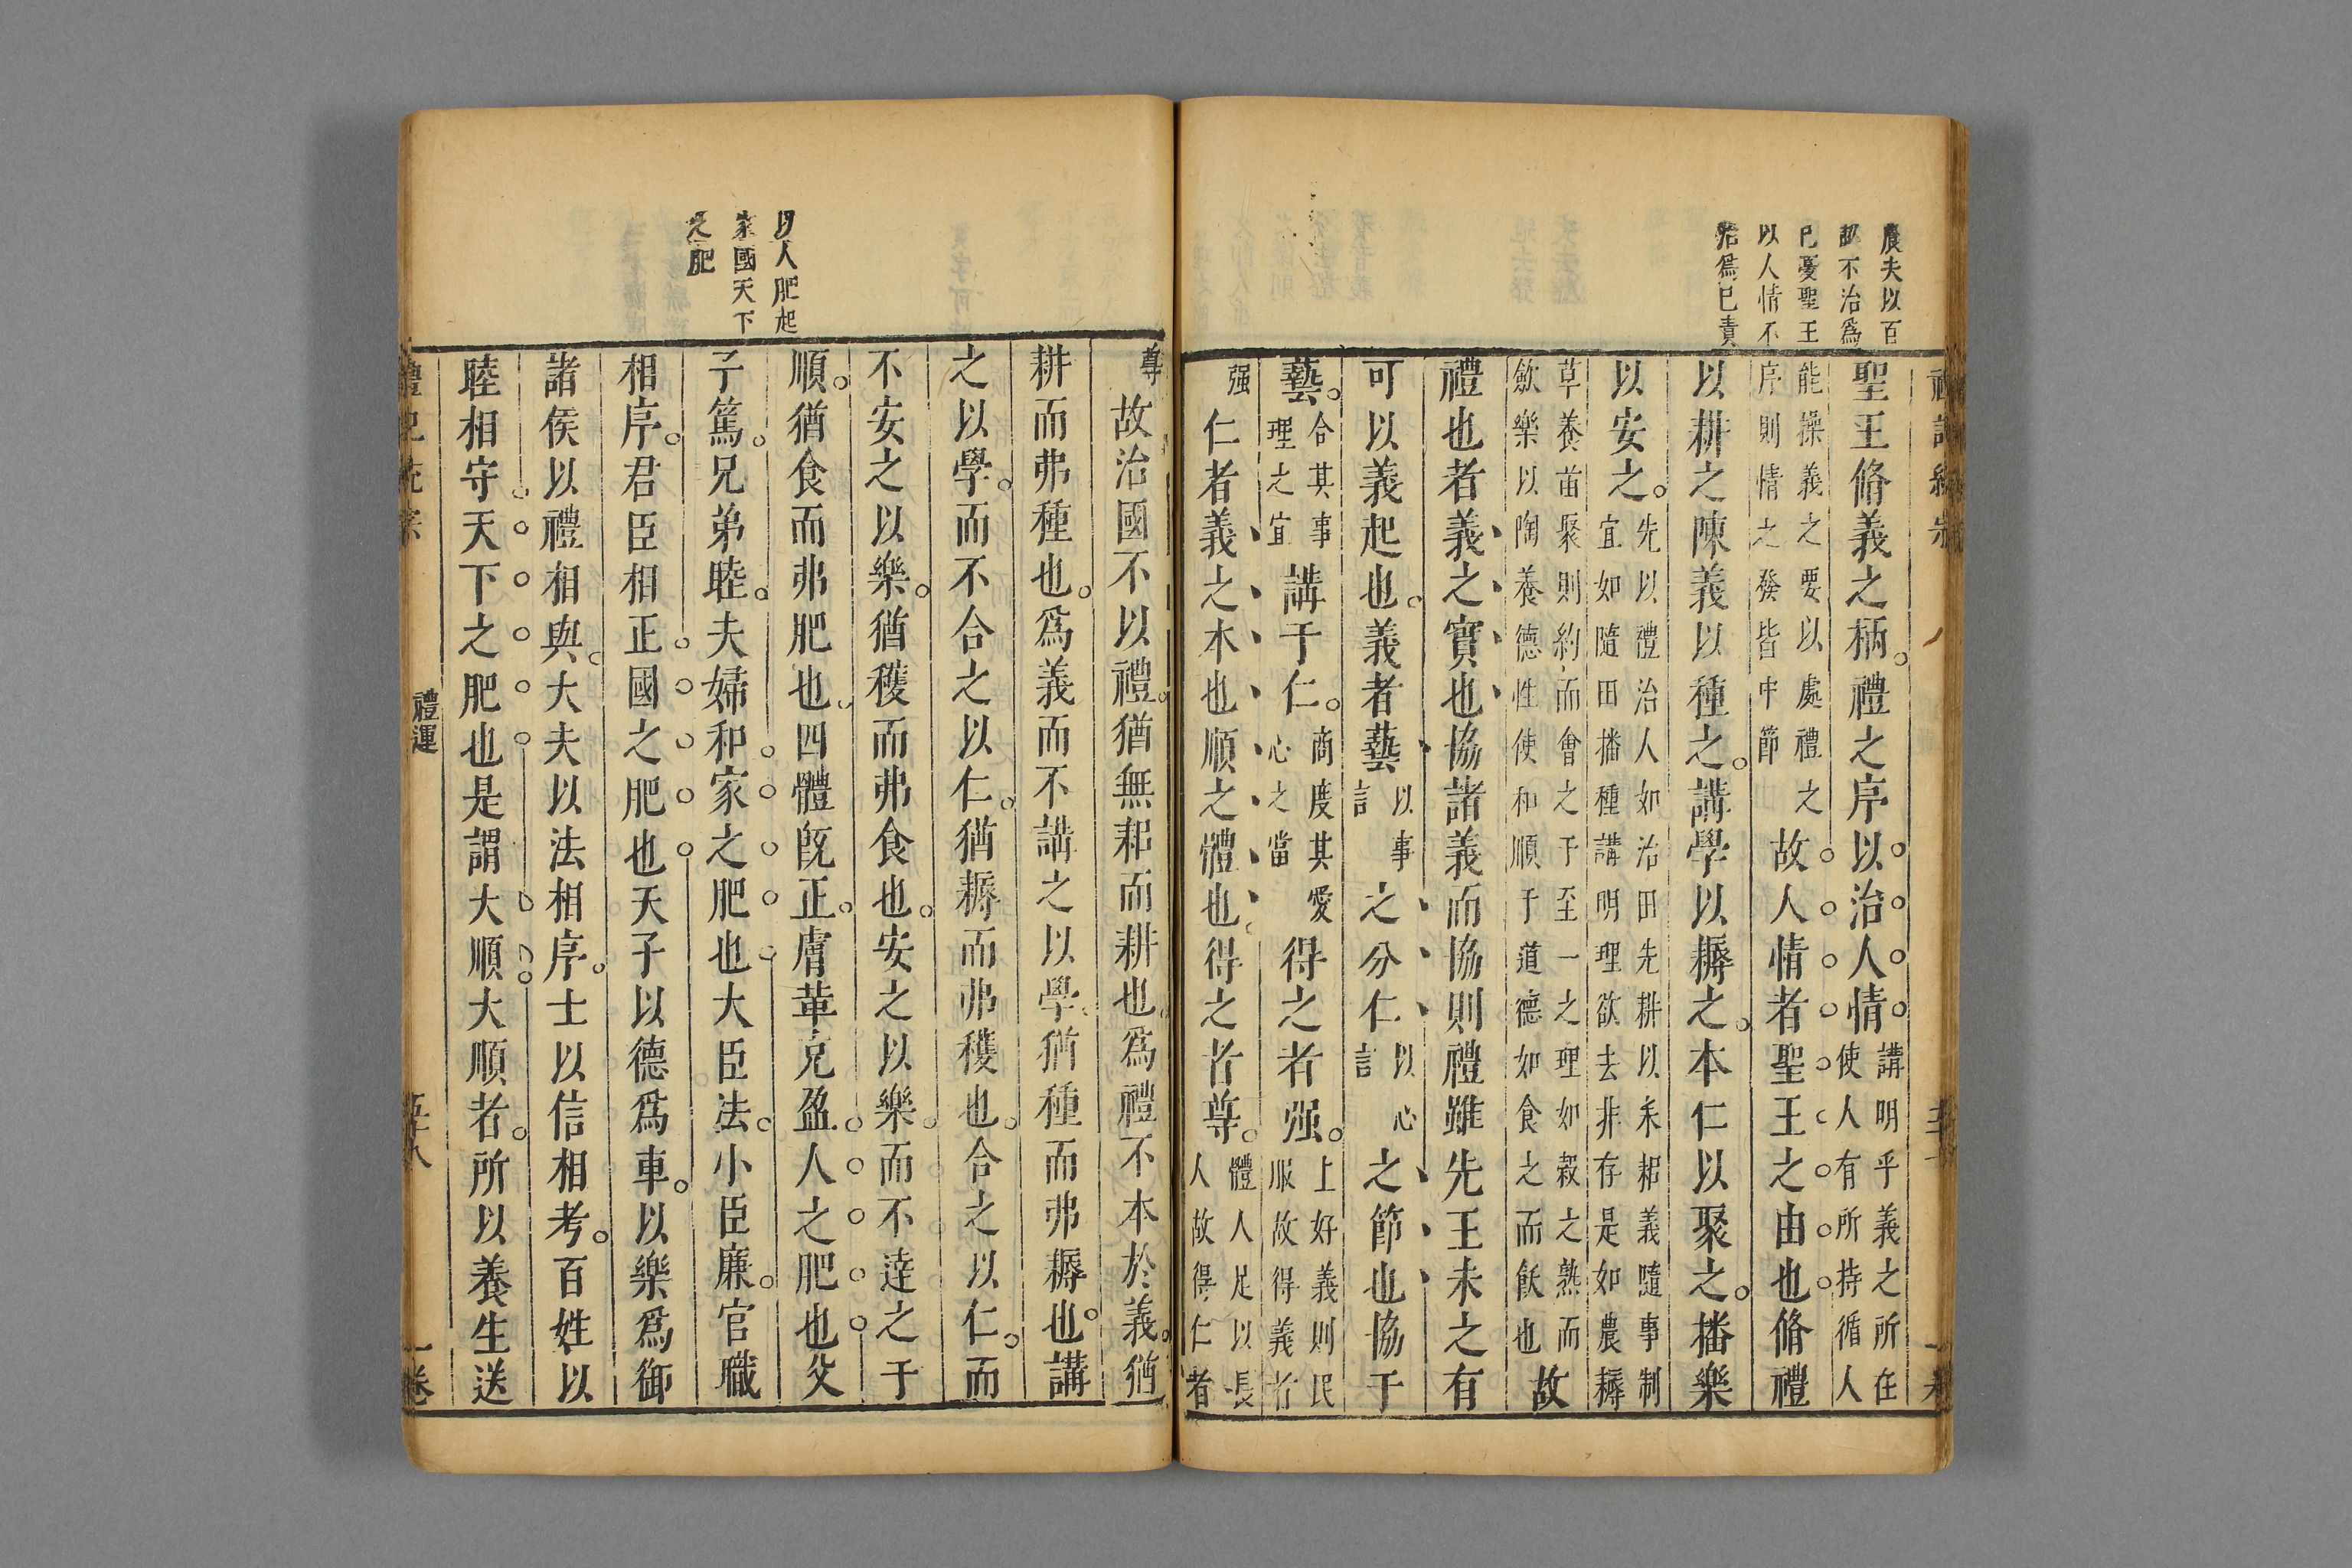 農夫以百
畝不治爲
己憂聖王
以人情不
治爲已責
聖王脩義之柄禮之序以治人情講明乎義之所在使人有所持循人
能操義之要以處禮之序則情之發皆中節故人情者聖王之由也脩禮
以耕之陳義以種之講學以耨之本仁以聚之播樂
以安之先以禮治人如治田先耕以耒耜義隨事制宜如隨田播種講明理欲去非存是如農耨
草養苗聚則約而會之于至一之理如穀之熟而斂樂以陶養德性使和順于道德如食之而飫也故
禮也者義之實也協諸義而協則禮雖先王未之有
可以義起也義者藝以事言之分仁以心言之節也協于
藝合其事理之宜講于仁商度其愛心之當得之者强上好義則民服故得義者
强仁者義之本也順之體也得之者尊體人足以長人故得仁者
尊故治國不以禮猶無耜而耕也爲禮不本於義猶
耕而弗種也爲義而不講之以學猶種而弗耨也講
之以學而不合之以仁猶耨而弗穫也合之以仁而
不安之以樂猶穫而弗食也安之以樂而不達之于
順猶食而弗肥也四體旣正膚革充盈人之肥也父
子篤兄弟睦夫婦和家之肥也大臣法小臣廉官職
相序君臣相正國之肥也天子以德爲車以樂爲御
諸侯以禮相與大夫以法相序士以信相考百姓以
睦相守天下之肥也是謂大順大順者所以養生送
以人肥起
家國天下
之肥
禮運